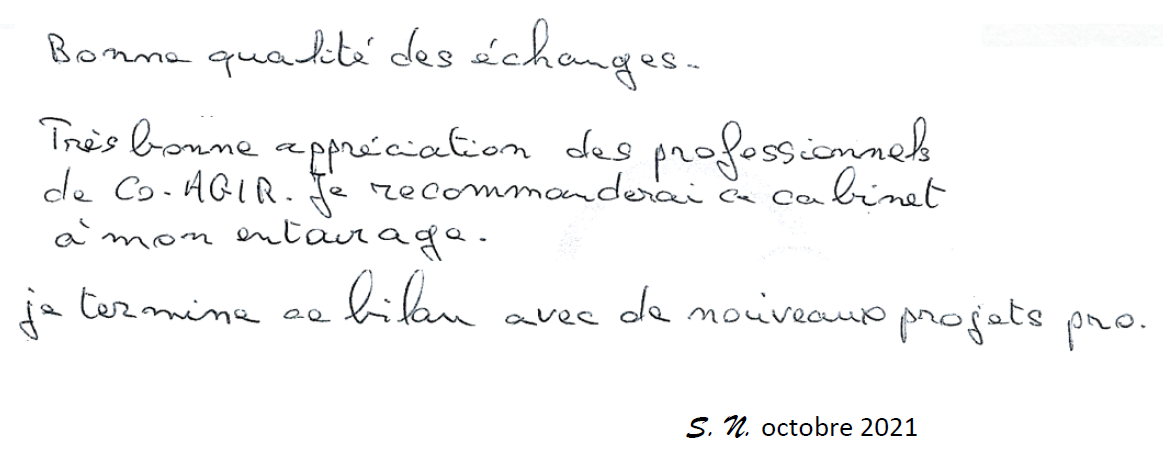 Bonne qualité des échanges.
Très bonne appréciation des professionnels
de Co-AGIR. Je recommanderai ce cabinet
à mon entourage.
je termine ce bilan avec de nouveaux projets pro.
S. N. octobre 2021